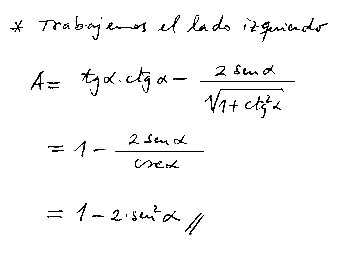 * Trabajemos el lado izquierdo
A = tgα.ctgα - 2senα/√(1+ctg²α)
= 1 - 2senα/cscα
= 1 - 2.sen²α //